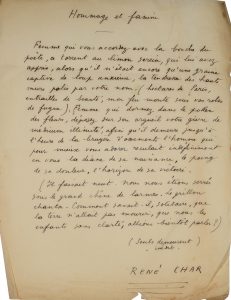 Hommage et famine
Femme qui vous accordez avec la bouche du
poète, ce torrent au limon serein, qui lui avez
appris, alors qu'il n'était encore qu'une graine
captive de loup anxieux, la tendresse des hauts
murs polis par votre nom (hectares de Paris,
entrailles de beauté, mon feu monte sous vos robes
de fugue), Femme qui dormez dans le pollen
des fleurs, déposez sur son orgueil votre givre de
médium illimité, afin qu'il demeure jusqu'à
l'heure de la bruyère d'ossements l'homme qui
pour mieux vous adorer reculait indéfiniment
en vous la diane de sa naissance, le poing
de sa douleur, l'horizon de sa victoire.
(Il faisait nuit. Nous nous étions serrés
sous le grand chêne de larmes. Le grillon
chanta. Comment savait-il, solitaire, que
la terre n'allait pas mourir, que nous, les
enfants sans clarté, allions bientôt parler ?)
(Seuls demeurent)
RENÉ CHAR